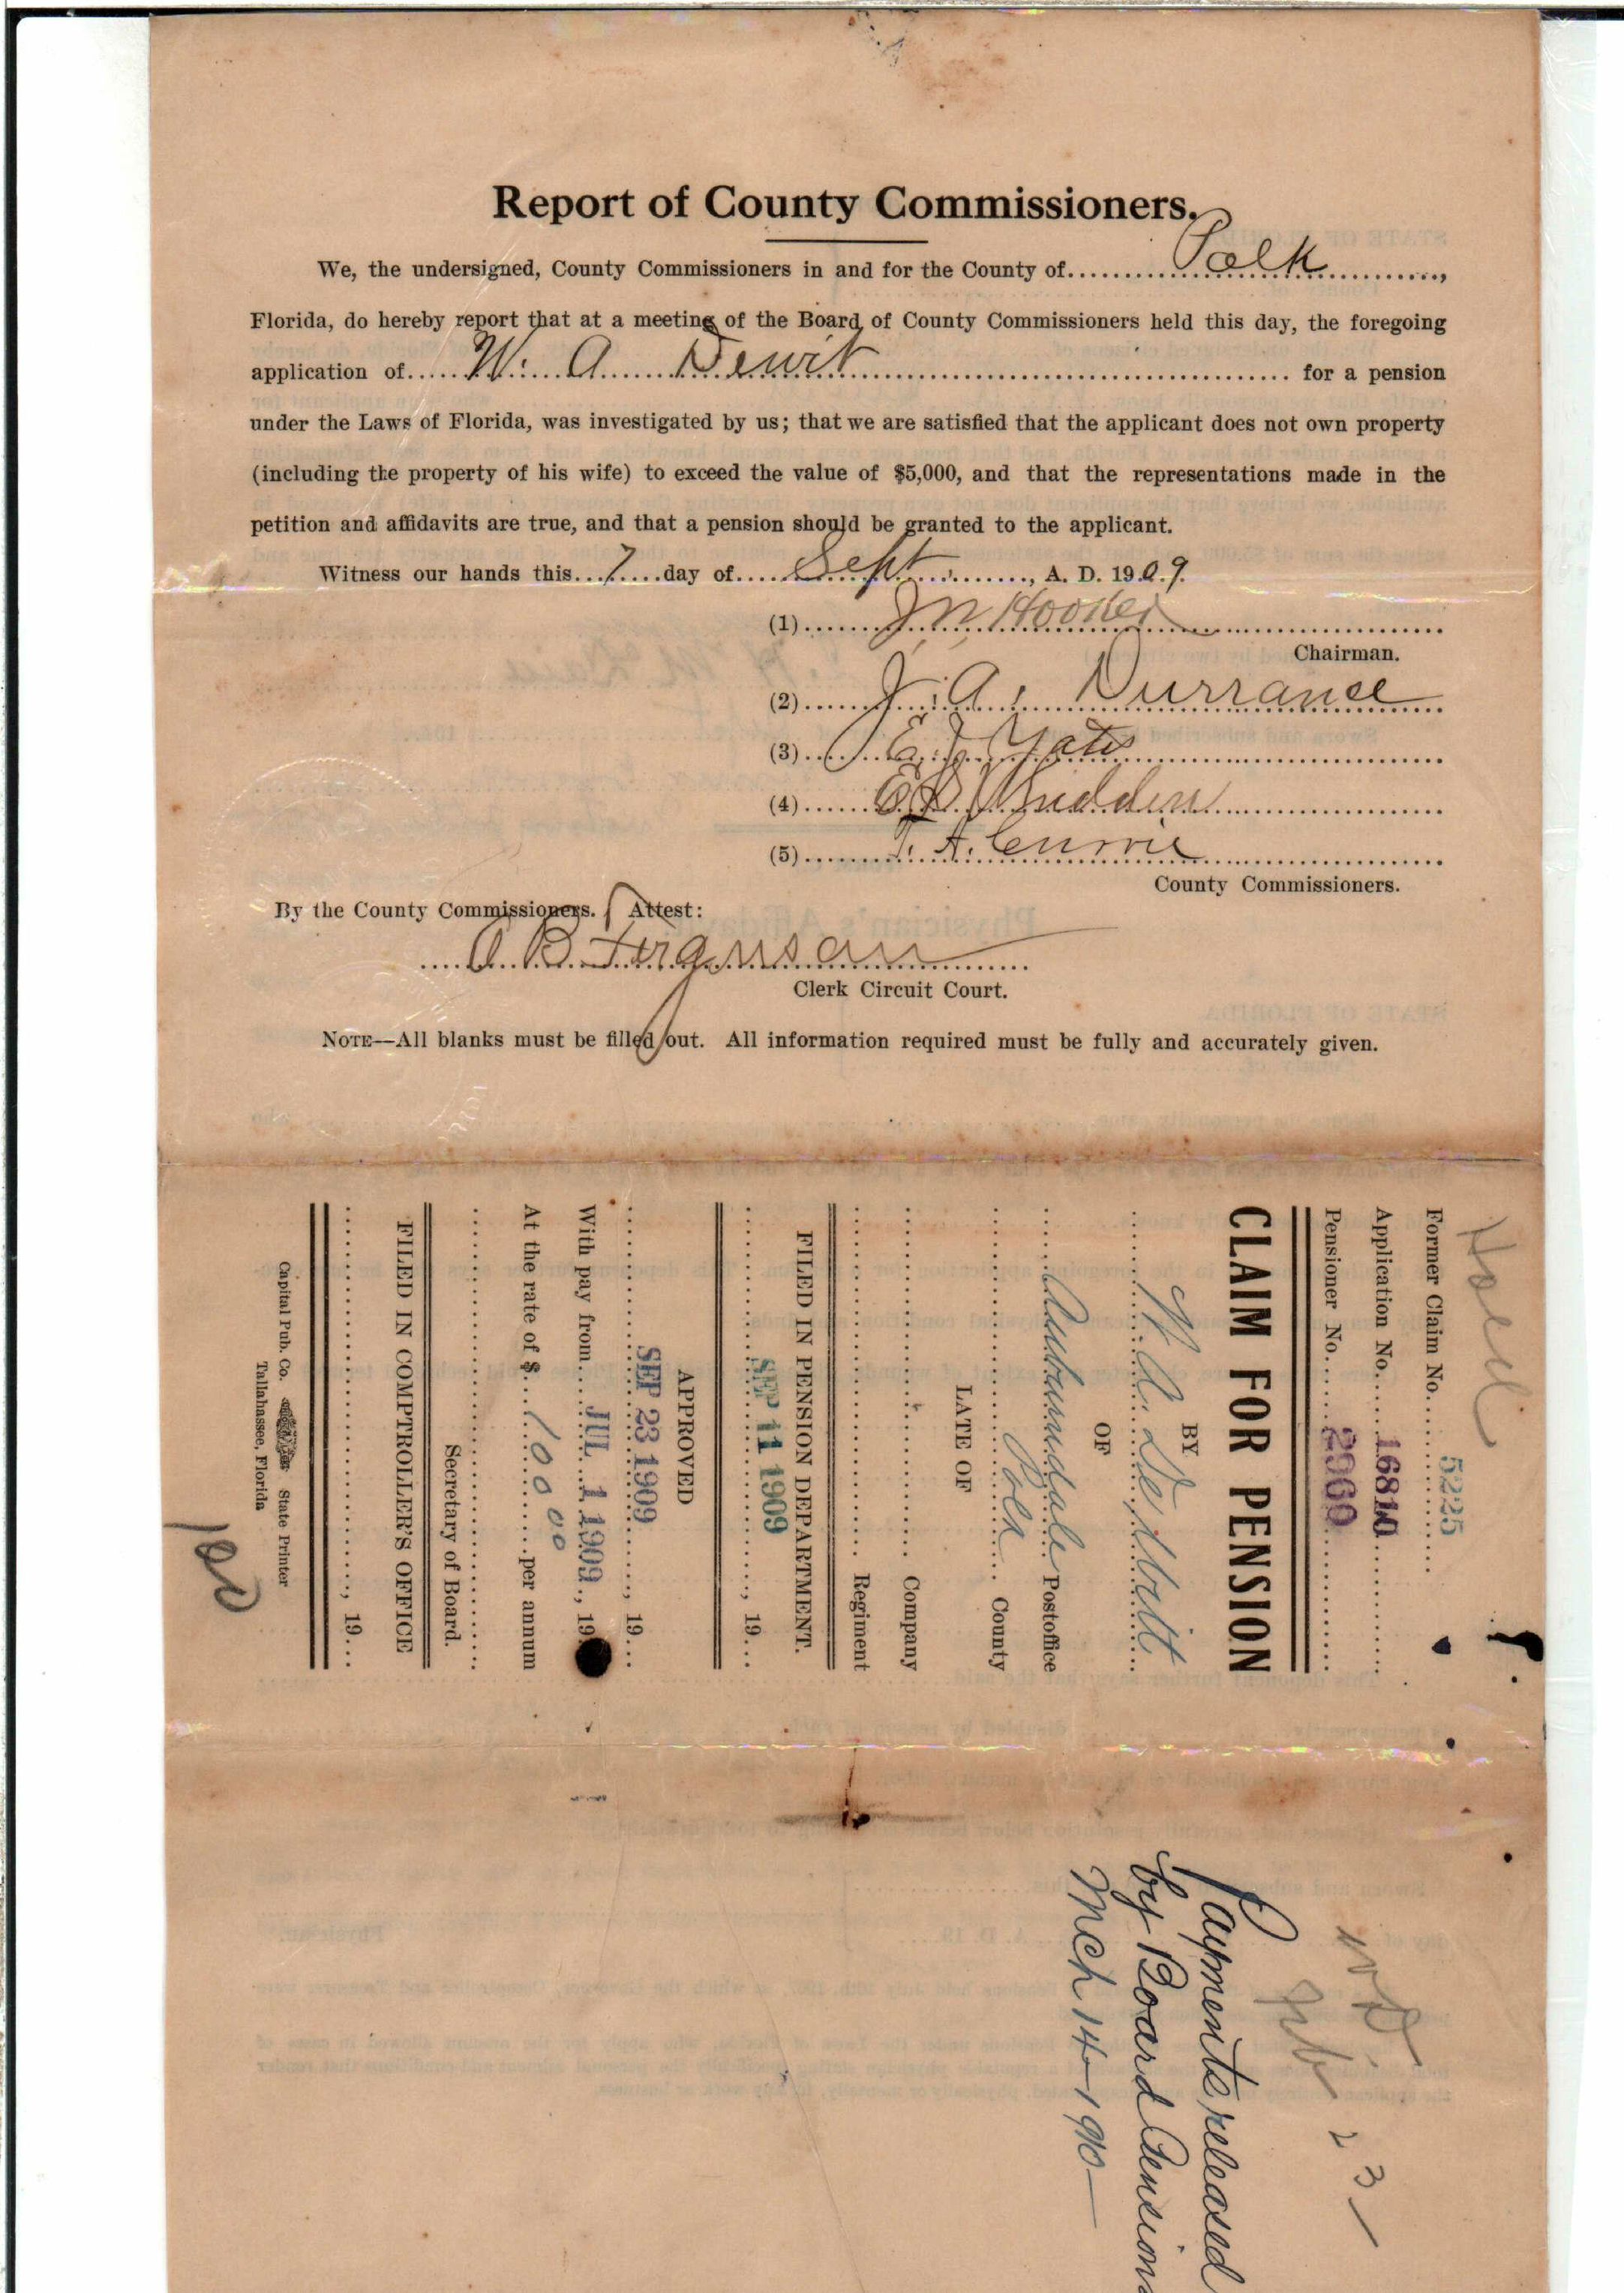 Report of County Commissioners.
We, the undersigned, County Commissioners in and for the County of Polk,
Florida, do hereby report that at a meeting of the Board of County Commissioners held this day, the foregoing
application of W. A. Dewit for a pension
under the Laws of Florida, was investigated by us; that we are satisfied that the applicant does not own property
(including the property of his wife) to exceed the value of $5,000, and that the representations made in the
petition and affidavits are true, and that a pension should be granted to the applicant.
Witness our hands this 7 day of Sept, A. D. 1909.
(1) J N Hooker
Chairman.
(2) J. A. Durrance
(3) E J Yates
(4) E S Whidden
(5) T. A. Currie
County Commissioners.
By the County Commissioners. Attest:
A B Ferguson
Clerk Circuit Court.
NOTE—All blanks must be filled out. All information required must be fully and accurately given.
Former Claim No. 5225
Application No. 16810
Pensioner No. 2960
CLAIM FOR PENSION
BY
W. A. DeWitt
OF
Auburndale Postoffice
Polk County
LATE OF
Company
Regiment
FILED IN PENSION DEPARTMENT.
SEP 11 1909, 19
APPROVED
SEP 23 1909, 19
With pay from JUL 1 1909, 19
At the rate of $ 100 00 per annum
Secretary of Board.
FILED IN COMPTROLLER'S OFFICE
, 19
Capital Pub. Co. State Printer
Tallahassee, Florida
Payments released
by Board Pensions
Mch 14-1910-